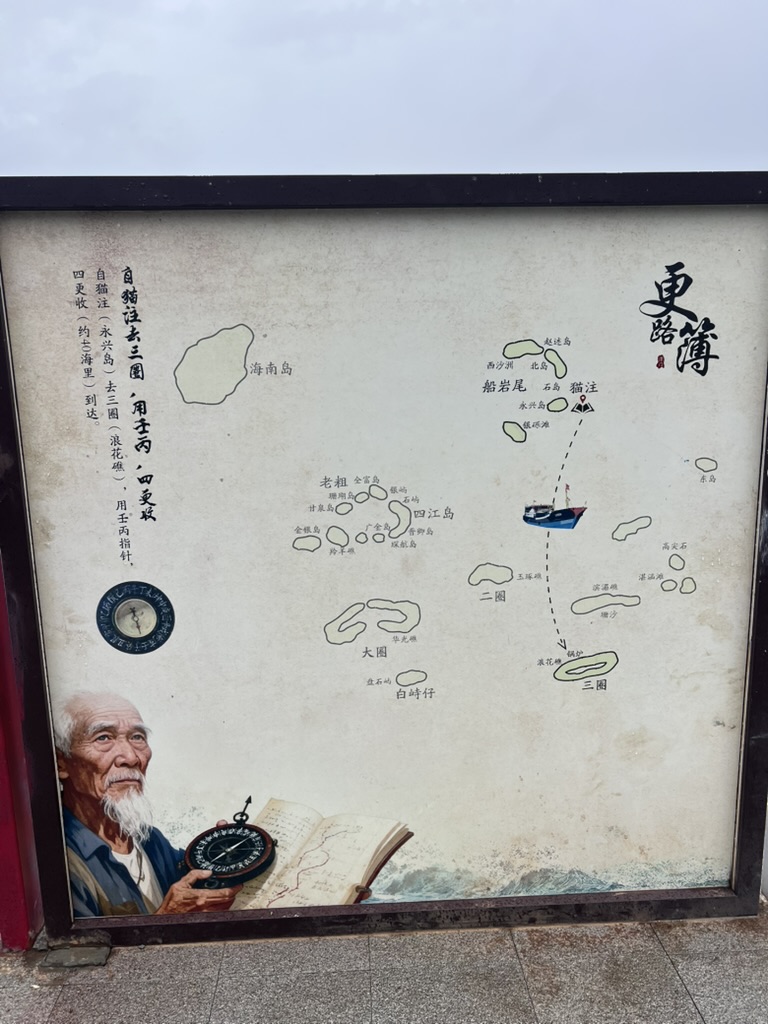 更路簿
自猫注去三圈，用壬丙，四更收
自猫注（永兴岛）去三圈（浪花礁），用壬丙指针，
四更收（约40海里）到达。
海南岛
赵述岛
西沙洲
北岛
船岩尾
石岛
猫注
永兴岛
银砾滩
东岛
老粗
全富岛
珊瑚岛
银屿
石屿
甘泉岛
四江岛
金银岛
羚羊礁
广金岛
晋卿岛
琛航岛
高尖石
湛涵滩
滨湄礁
珊沙
玉琢礁
二圈
华光礁
大圈
盘石屿
白峙仔
锅炉
浪花礁
三圈